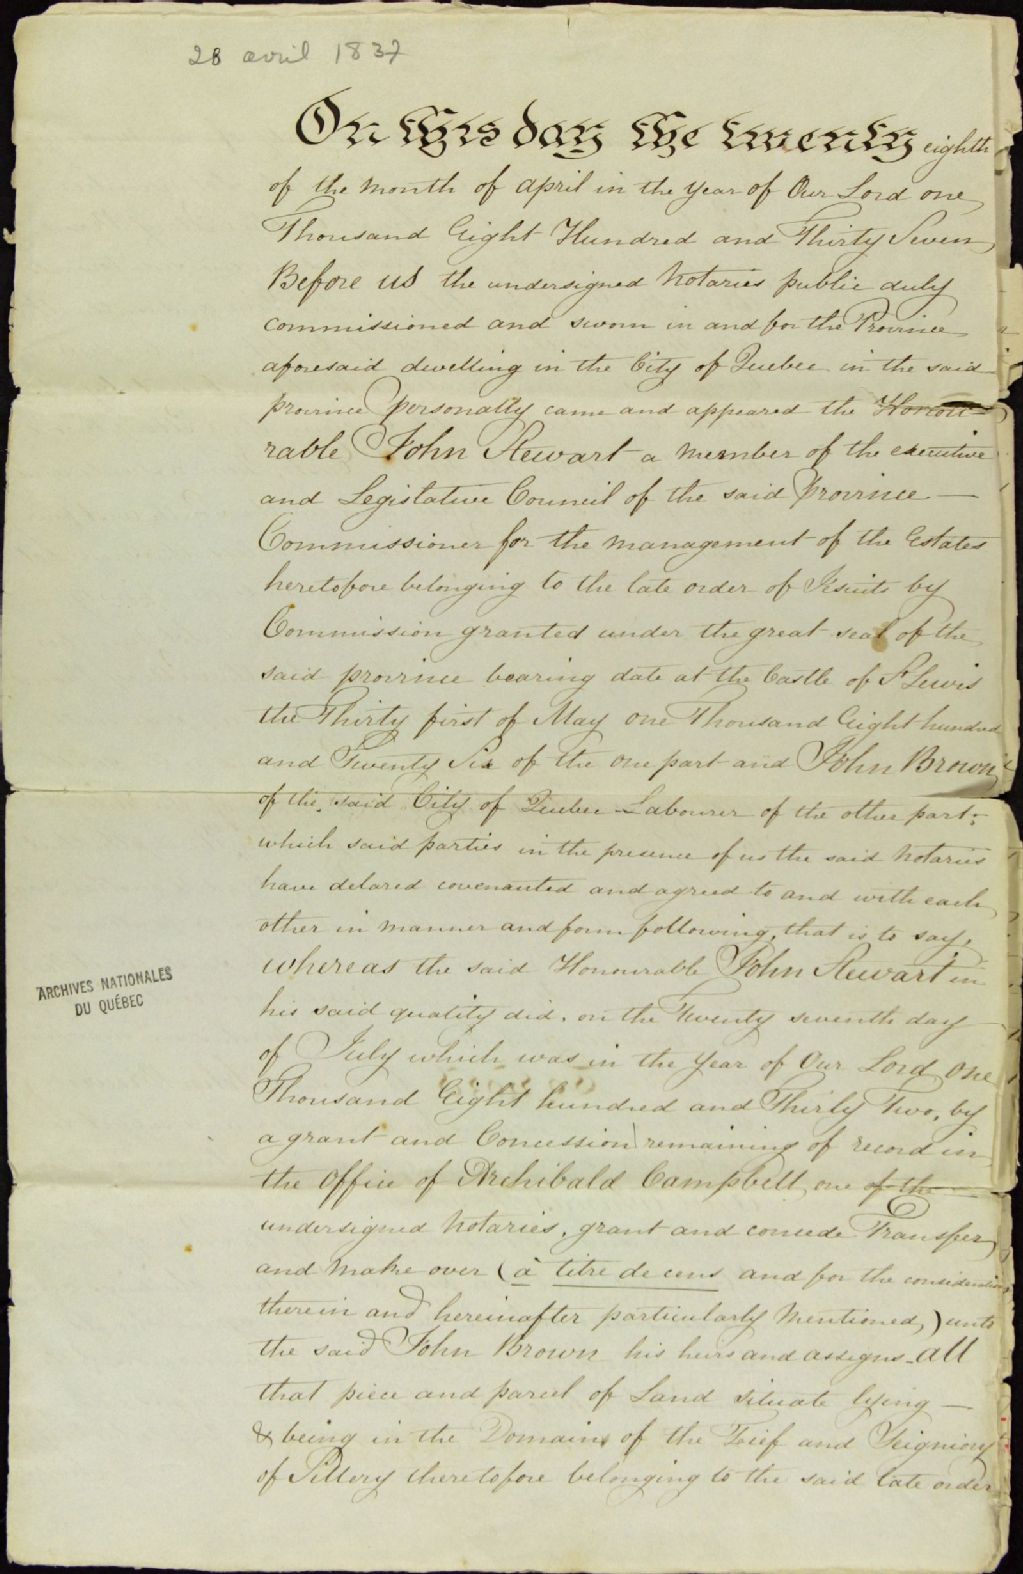 28 avril 1837
On this day the twenty eighth
of the month of april in the year of Our Lord one
Thousand Eight Hundred and Thirty Seven
Before us the undersigned Notaries public duly
commissioned and sworn in and for the Province
aforesaid dwelling in the City of Quebec in the said
province personally came and appeared the Honou-
rable John Stewart a member of the executive
and Legislative Council of the said Province —
Commissioner for the management of the Estates
heretofore belonging to the late order of Jesuits by
Commission granted under the great seal of the
said province bearing date at the Castle of St Lewis
the Thirty first of May one Thousand Eight hundred
and Twenty Six of the one part and John Brown
of the said City of Quebec Labourer of the other part;
which said parties in the presence of us the said Notaries
have delared covenanted and agreed to and with each
other in manner and form following, that is to say,
whereas the said Honourable John Stewart in
his said quality did, on the Twenty seventh day
of July which was in the year of Our Lord One
Thousand Eight hundred and Thirty Two, by
a grant and Concession remaining of record in
the Office of Archibald Campbell one of the
undersigned Notaries, grant and concede Transfer
and make over (à titre de cens and for the consideration
therein and hereinafter particularly mentioned,) unto
the said John Brown his heirs and assigns all
that piece and parcel of Land situate lying —
& being in the Domain of the Fief and Seigniory
of Sillery theretofore belonging to the said late order
ARCHIVES NATIONALES
DU QUÉBEC